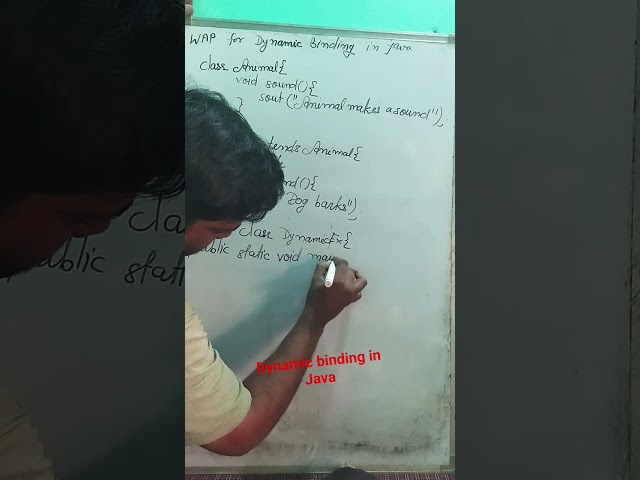 WAP for Dynamic Binding in Java
class Animal{
void sound(){
sout ("Animal makes a sound");
}
tends Animal{
nd(){
Dog barks");
class DynamicEx{
public static void mai
Dynamic binding in
Java